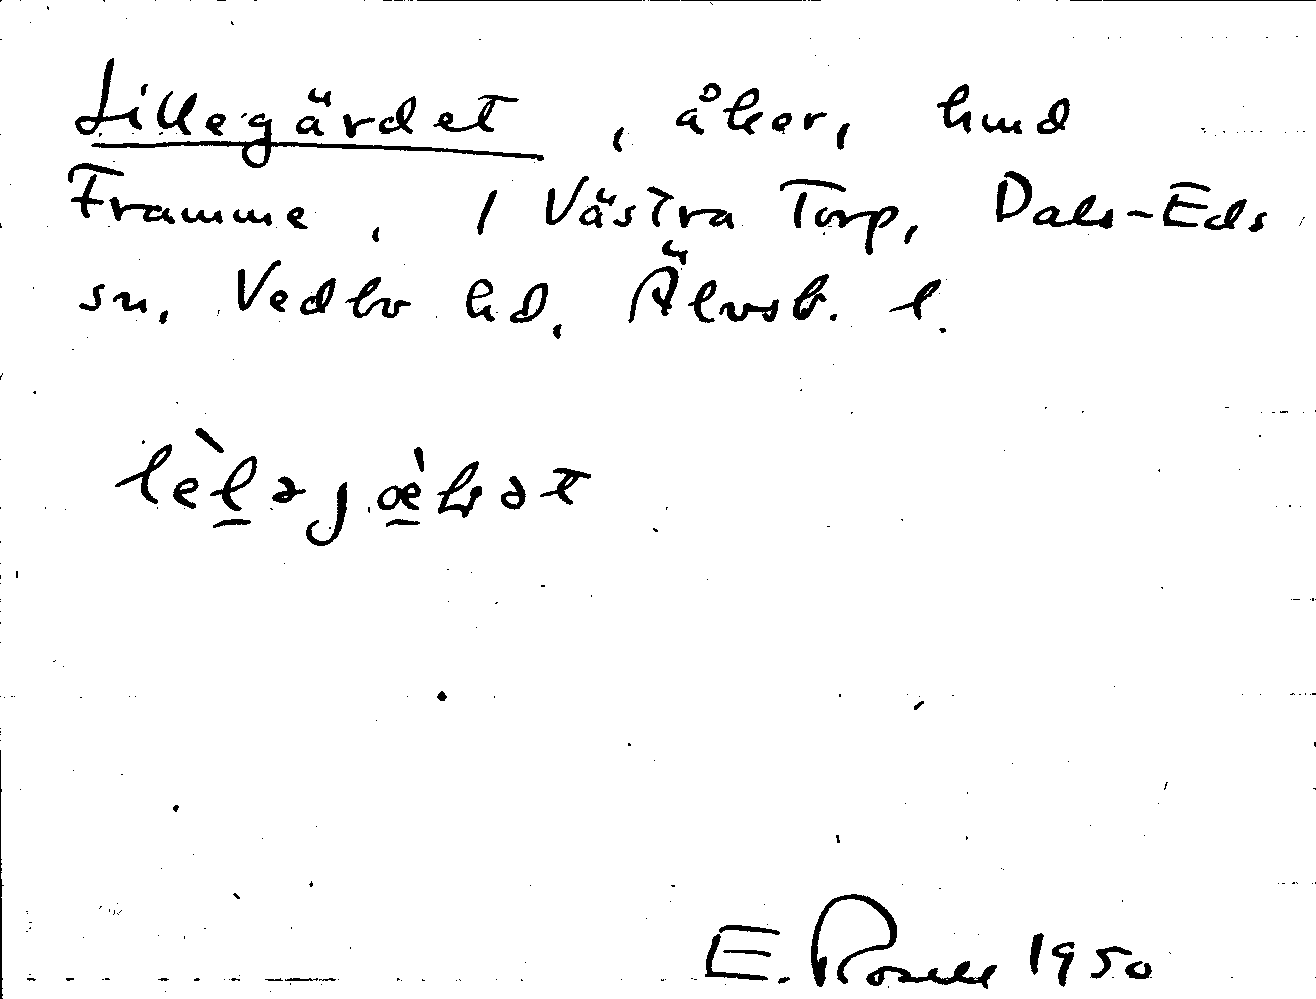 Lillegärdet, åker, hmd
Framme, 1 Västra Torp, Dals-Eds
sn, Vedbo hd, Älvsb. l.
E. Rosell 1950